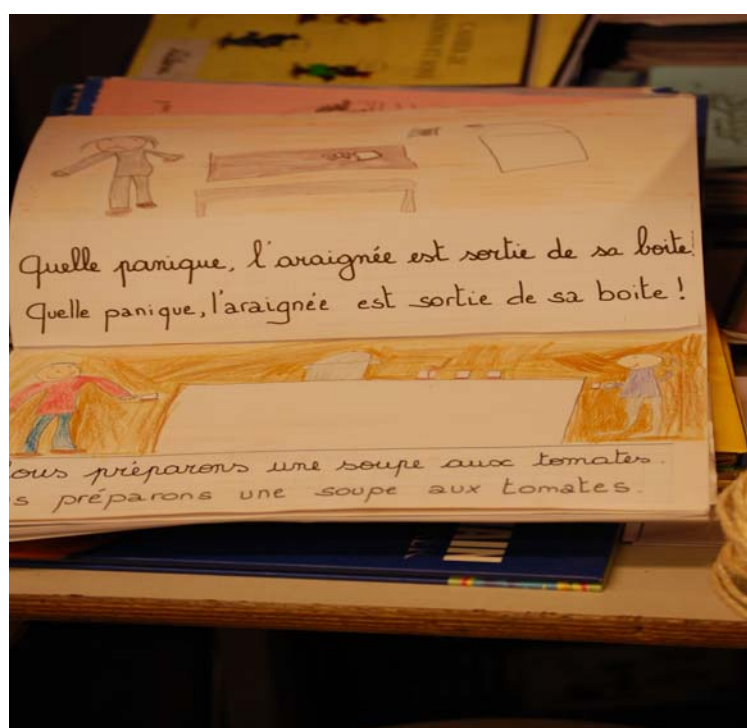 Quelle panique, l'araignée est sortie de sa boite
Quelle panique, l'araignée est sortie de sa boite !
ous préparons une soupe aux tomates.
s préparons une soupe aux tomates.